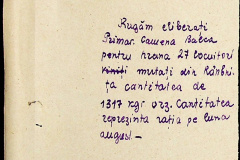 Rugăm eliberati
Primar. Causena Balca
pentru hrana 27 locuitori
mutați din Rânbri-
ța cantitatea de
1317 kgr orz. Cantitatea
reprezinta rația pe luna
august.—